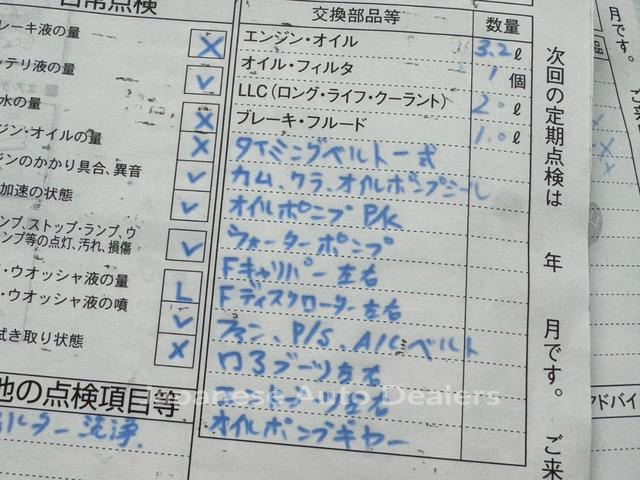 日常点検
レーキ液の量
ッテリ液の量
水の量
ジン・オイルの量
ジンのかかり具合、異音
加速の状態
ンプ、ストップ・ランプ、ウ
ンプ等の点灯、汚れ、損傷
・ウオッシャ液の量
・ウオッシャ液の噴
拭き取り状態
他の点検項目等
ィルター洗浄
交換部品等 数量
エンジン・オイル 3.2 ℓ
オイル・フィルタ 1 個
LLC(ロング・ライフ・クーラント) 2.0 ℓ
ブレーキ・フルード 1.0 ℓ
タイミングベルト一式
カム、クラ、オイルポンプシール
オイルポンプ P/K
ウォーターポンプ
Fキャリパー左右
Fディスクローター左右
ファン、P/S、A/Cベルト
ロアブーツ左右
ブーツ左右
オイルポンプギヤー
次回の定期点検は 年 月です。 ご来
月です。
アドバイ
Japanese Auto Dealers